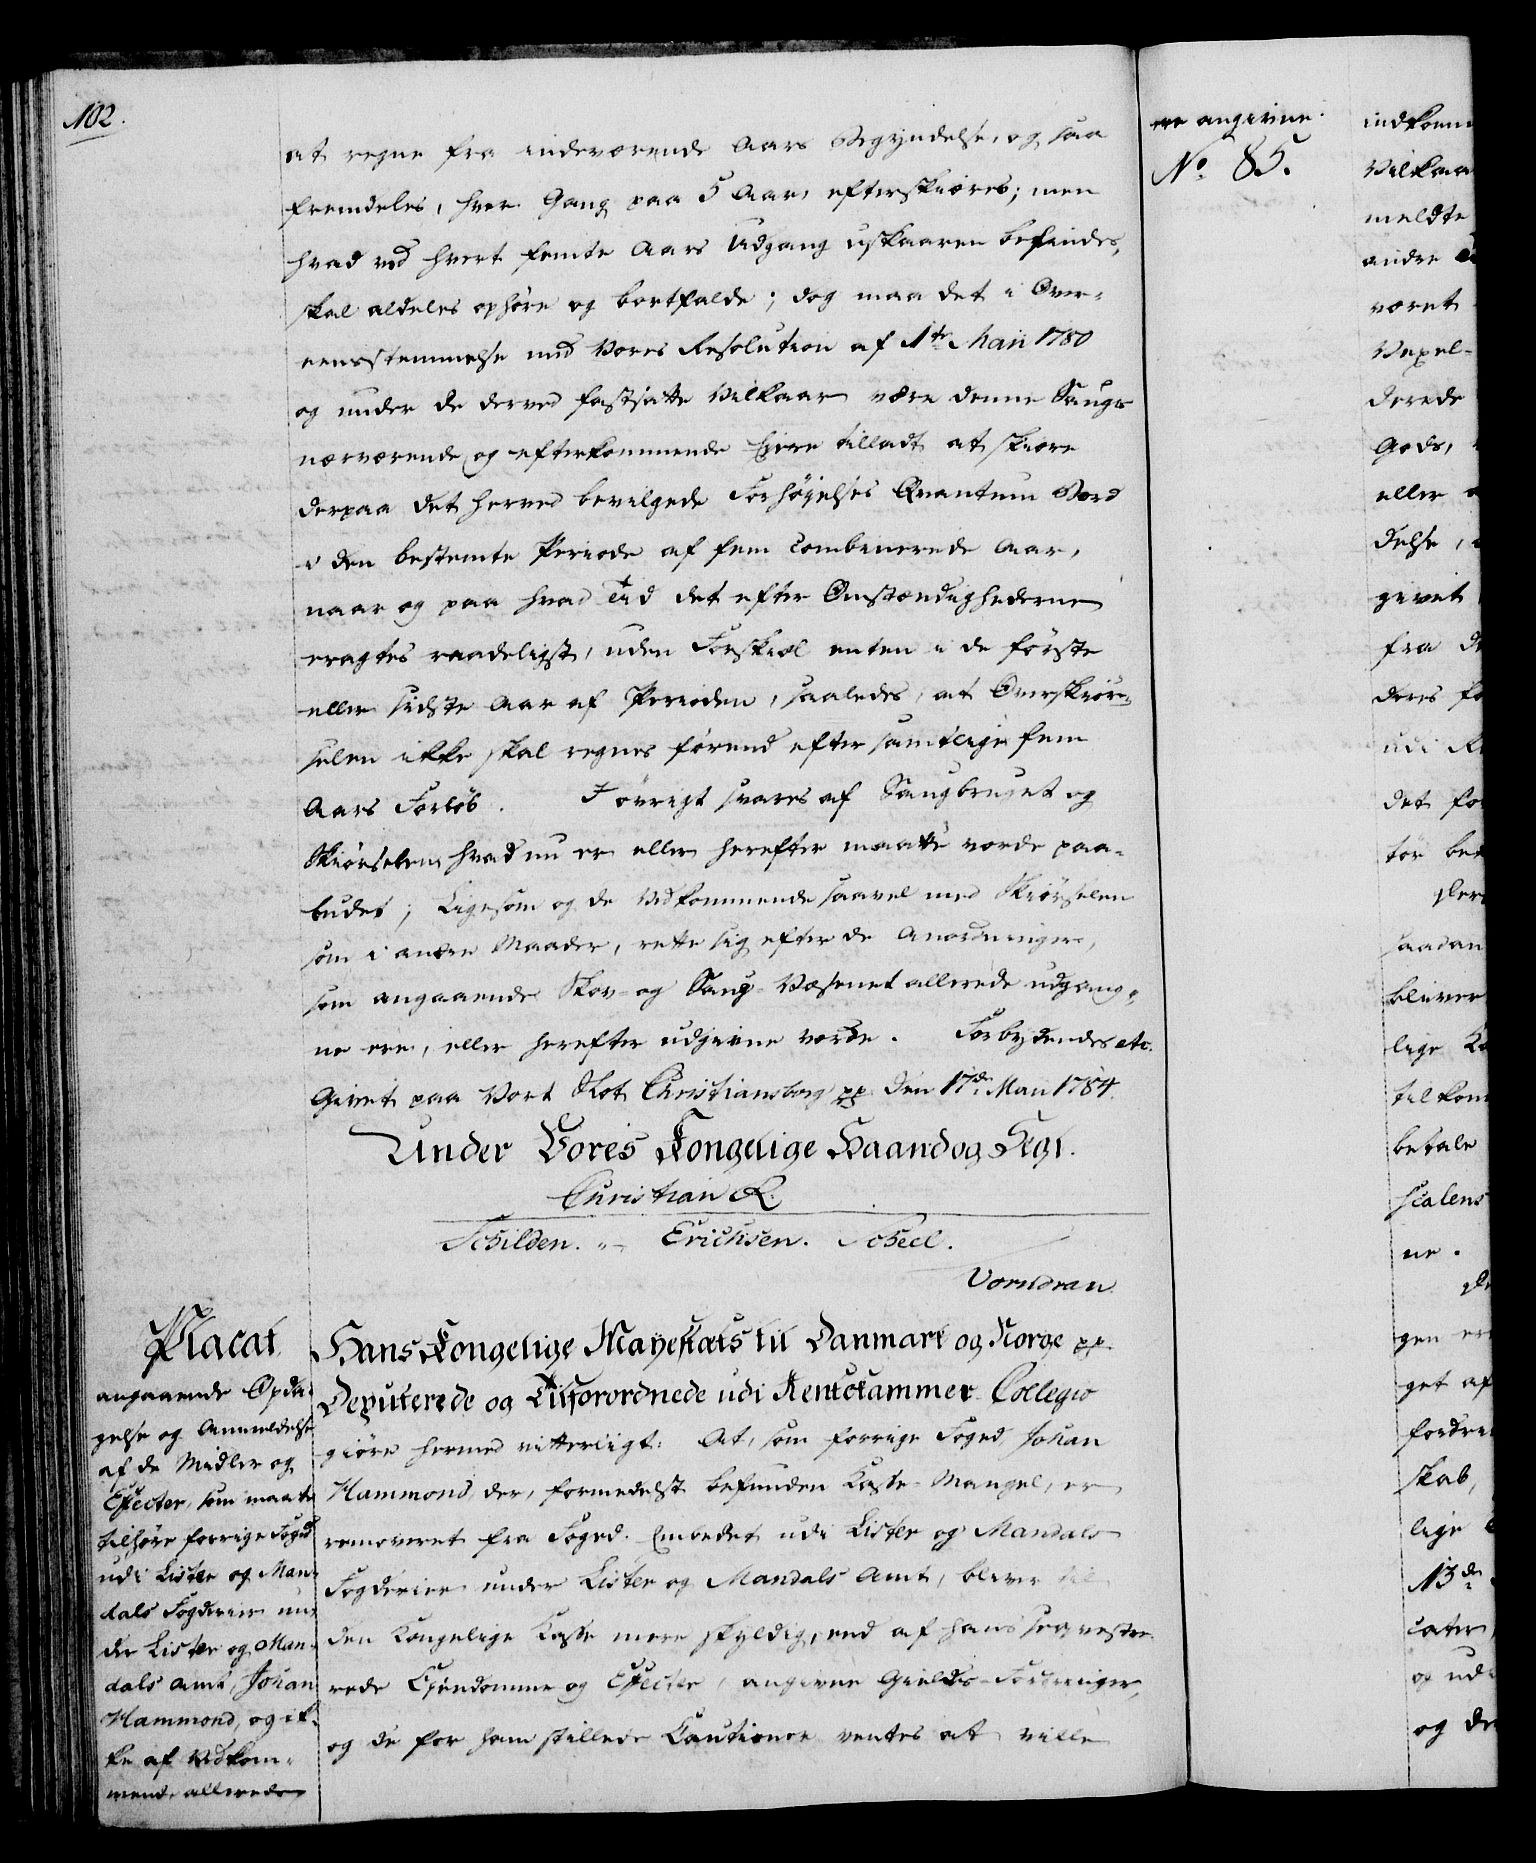 102.
at regne fra indeværende Aars Begyndelse, og saa
fremdeles, hver Gang paa 5 Aar, efterskiæres; men
hvad ved hvert femte Aars Udgang uskaaren befindes,
skal aldeles ophøre og bortfalde; dog maa det i Over-
eensstemmelse med Vores Resolution af 1te Maii 1780
og under de derved fastsatte Vilkaar være denne Saugs
nærværende og efterkommende Eiere tilladt at skiære
derpaa det herved bevilgede Forhøyelses Qvantum Bord
i den bestemte Periode af fem combinerede Aar,
naar og paa hvad Tid det efter Omstændighederne
eragtes raadeligst, uden Forskiæl enten i de første
eller sidste Aar af Perioden, saaledes, at Overskiør-
selen ikke skal regnes førend efter samtlige fem
Aars Forløb. I øvrigt svares af Saugbruget og
Skiørselen hvad nu er eller herefter maatte vorde paa-
budet; Ligesom og de Vedkommende saavel med Skiørselen
som i andre Maader, rette sig efter de Anordninger,
som angaaende Skov- og Saug-Væsenet allerede udgang-
ne ere, eller herefter udgivne vorde. Forbydendes etc.
Givet paa Vort Slot Christiansborg pp den 17de Maii 1784.
Under Vores Kongelige Haand og Segl.
Christian R.
Schilden. Erichsen. Scheel.
Vormdran
Placat
angaaende Opda-
gelse og Anmeldelse
af de Midler og
Effecter, som maatte
tilhøre forrige Foged
udi Lister og Man-
dals Fogderier un-
der Lister og Man-
dals Amt, Johan
Hammond, og ik-
ke af Vedkom-
mende allerede
Hans Kongelige Mayestæts til Danmark og Norge pp.
Deputerede og Tilforordnede udi Rentekammer-Collegio
giøre hermed vitterligt: At, som forrige Foged Johan
Hammond, der, formedelst befunden Kasse-Mangel, er
removeret fra Foged-Embedet udi Lister og Mandals
Fogderier under Lister og Mandals Amt, bliver til
den Kongelige Kasse mere skyldig, end af hans seqvestre-
rede Ejendomme og Effecter, angivne Gields-Fordringer,
og de for ham stillede Cautioner ventes at ville
ere angivne.
No 85.
indkomm
Vilkaa
meldte
andre
været
Vexel-
derede
Gods,
eller
delse,
givet
fra
deres
udi
det
tør
saadan
bliver
lige
til kom
betale
scalens
ne.
gen
get af
fordre
skab,
lige
13de
cater,
og ud
og de